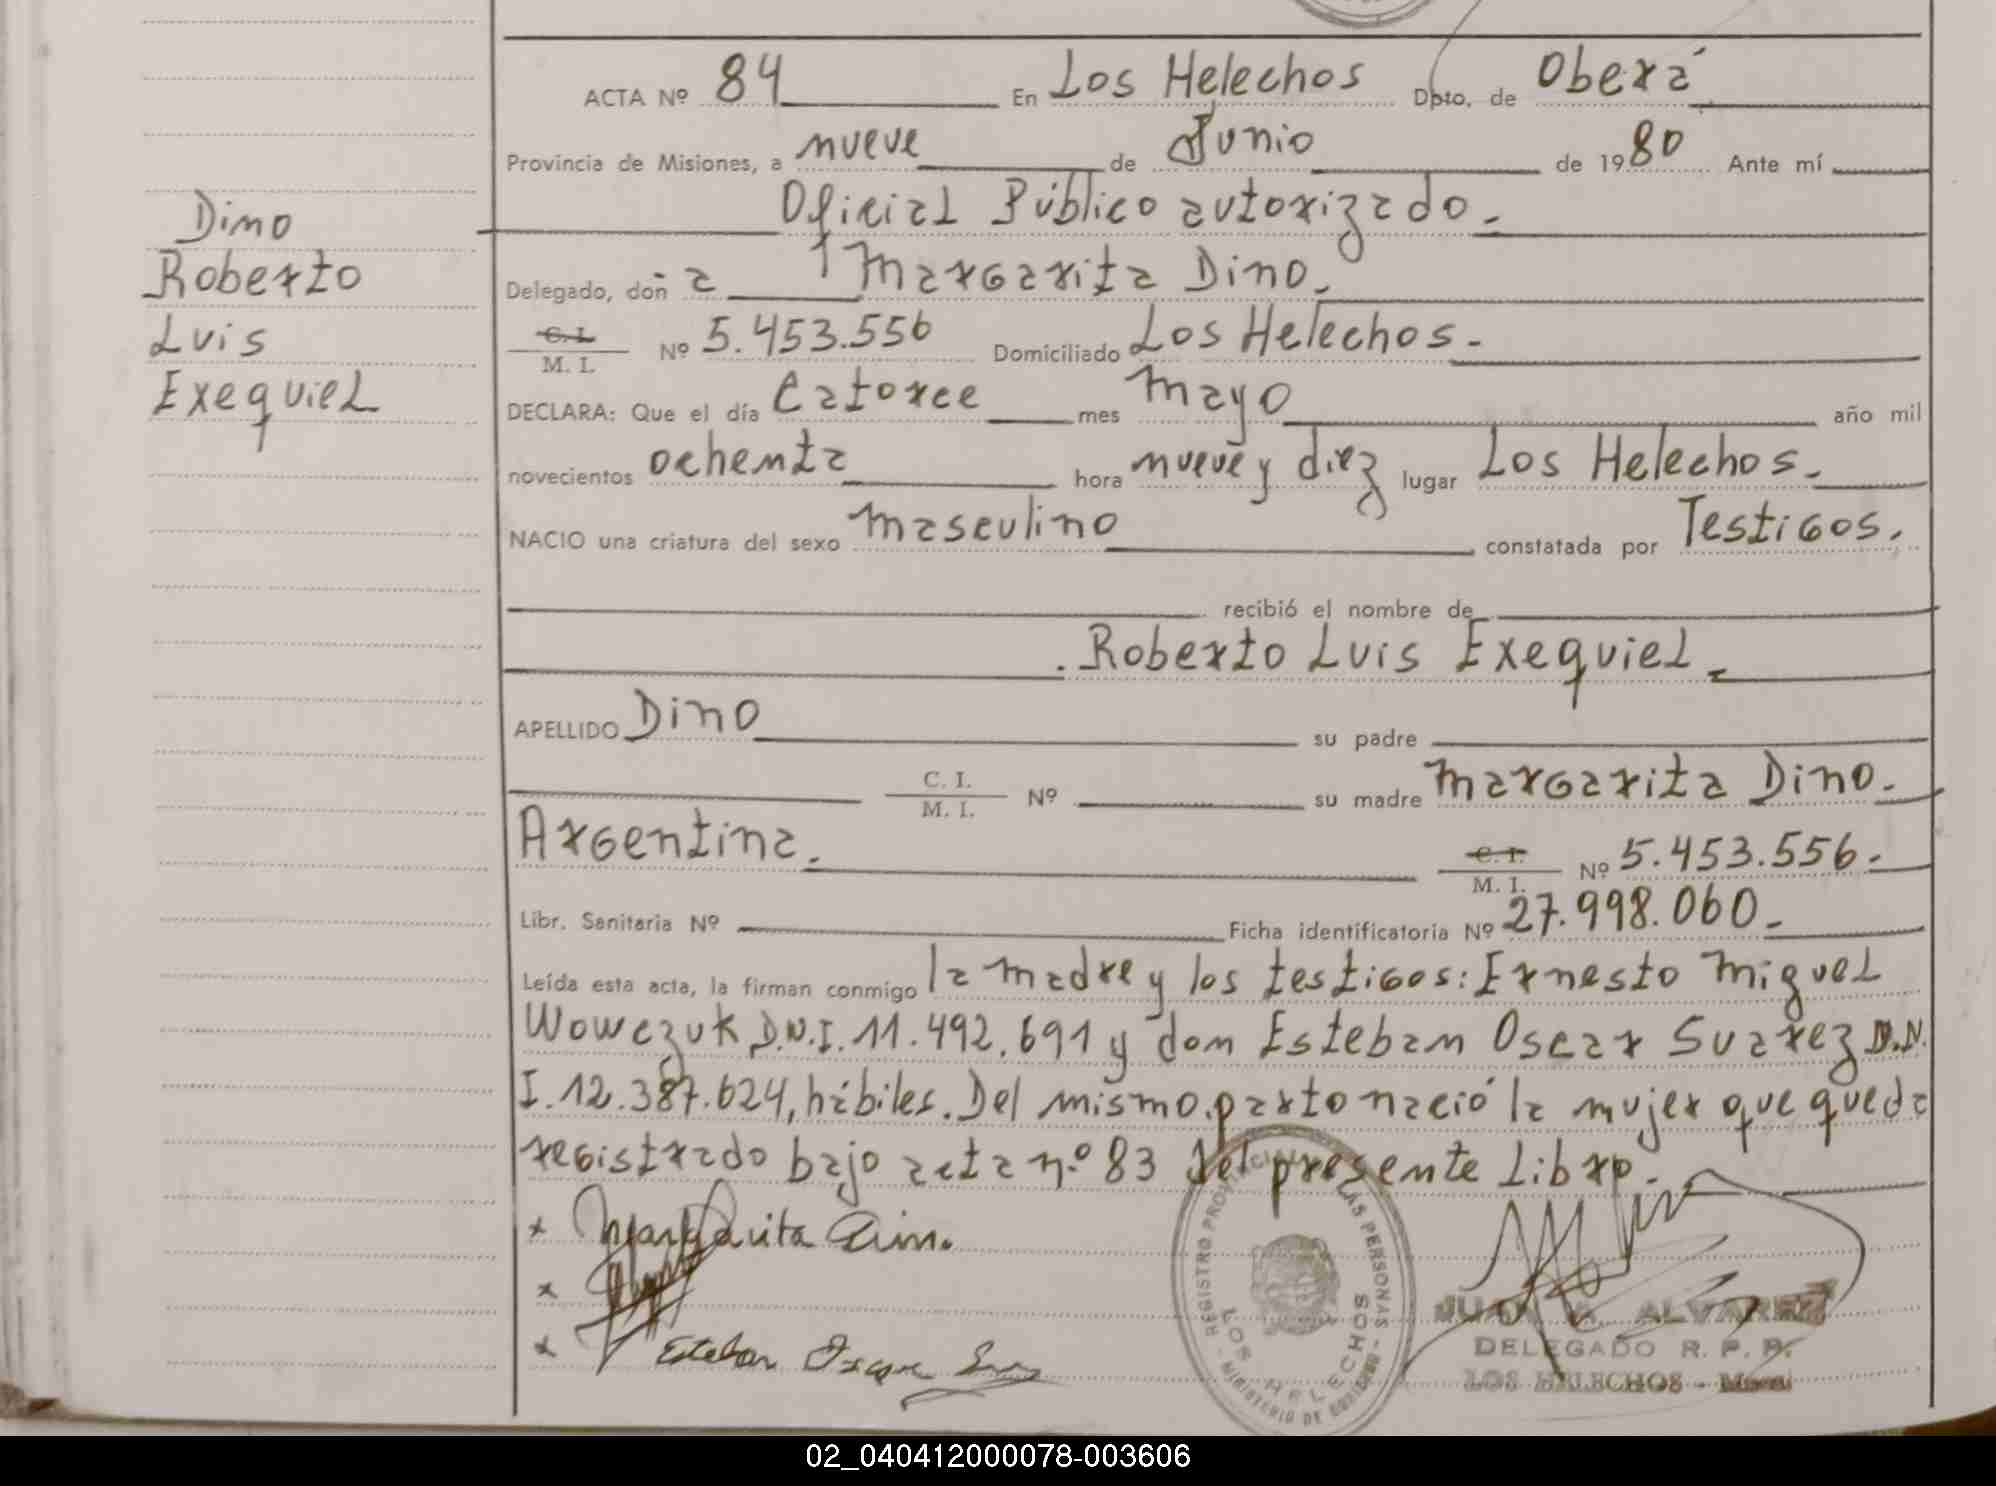 ACTA Nº 84 En Los Helechos Dpto. de Oberá
Provincia de Misiones, a nueve de Junio de 1980 Ante mí
Oficial Público autorizado.
Delegado, doña Margarita Dino.
C. I. M. I. Nº 5.453.556 Domiciliado Los Helechos.
DECLARA: Que el día Catorce mes mayo año mil
novecientos ochenta hora nueve y diez lugar Los Helechos.
NACIO una criatura del sexo masculino constatada por Testigos.
recibió el nombre de
Roberto Luis Exequiel
APELLIDO Dino su padre
C. I. M. I. Nº su madre Margarita Dino.
Argentina. C. I. M. I. Nº 5.453.556.
Libr. Sanitaria Nº Ficha identificatoria Nº 27.998.060
Leída esta acta, la firman conmigo la madre y los testigos: Ernesto Miguel
Wowczuk D.N.I. 11.492.691 y don Esteban Oscar Suarez D.N.
I. 12.387.624, hábiles. Del mismo parto nació la mujer que queda
registrado bajo acta n.º 83 del presente Libro.
Dino
Roberto
Luis
Exequiel
x Margarita Dino.
x
x Esteban Oscar
REGISTRO PROVINCIAL DE LAS PERSONAS - MINISTERIO DE GOBIERNO -
LOS HELECHOS
JUAN A. ALVAREZ
DELEGADO R. P. P.
LOS HELECHOS - Mnes.
02_040412000078-003606